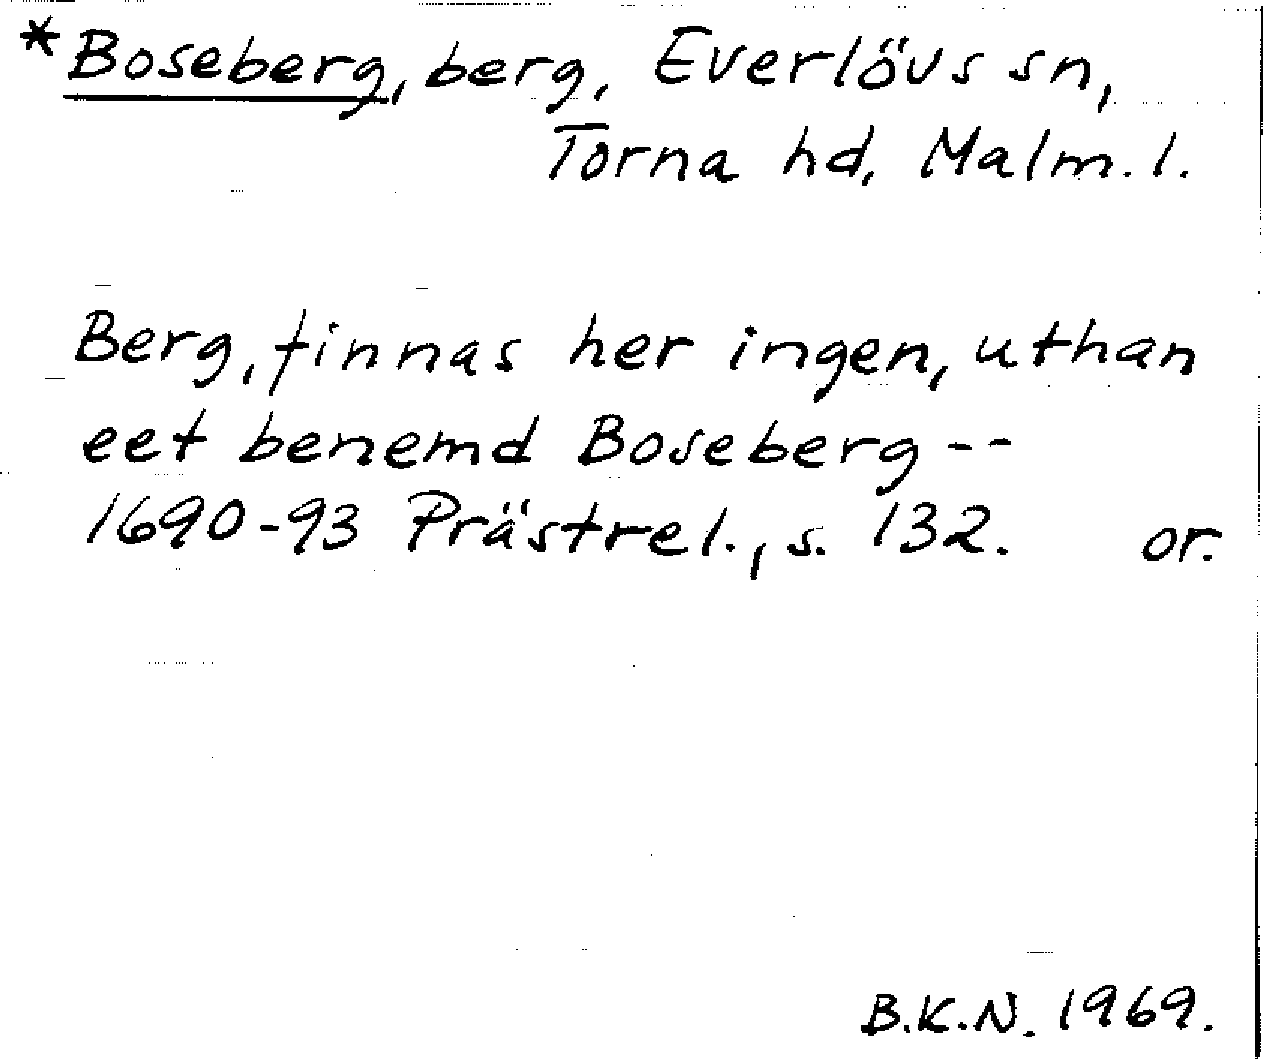 *Boseberg, berg, Everlövs sn,
Torna hd, Malm. l.
Berg, finnas her ingen, uthan
eet benemd Boseberg --
1690-93 Prästrel., s. 132. or.
B.K.N. 1969.